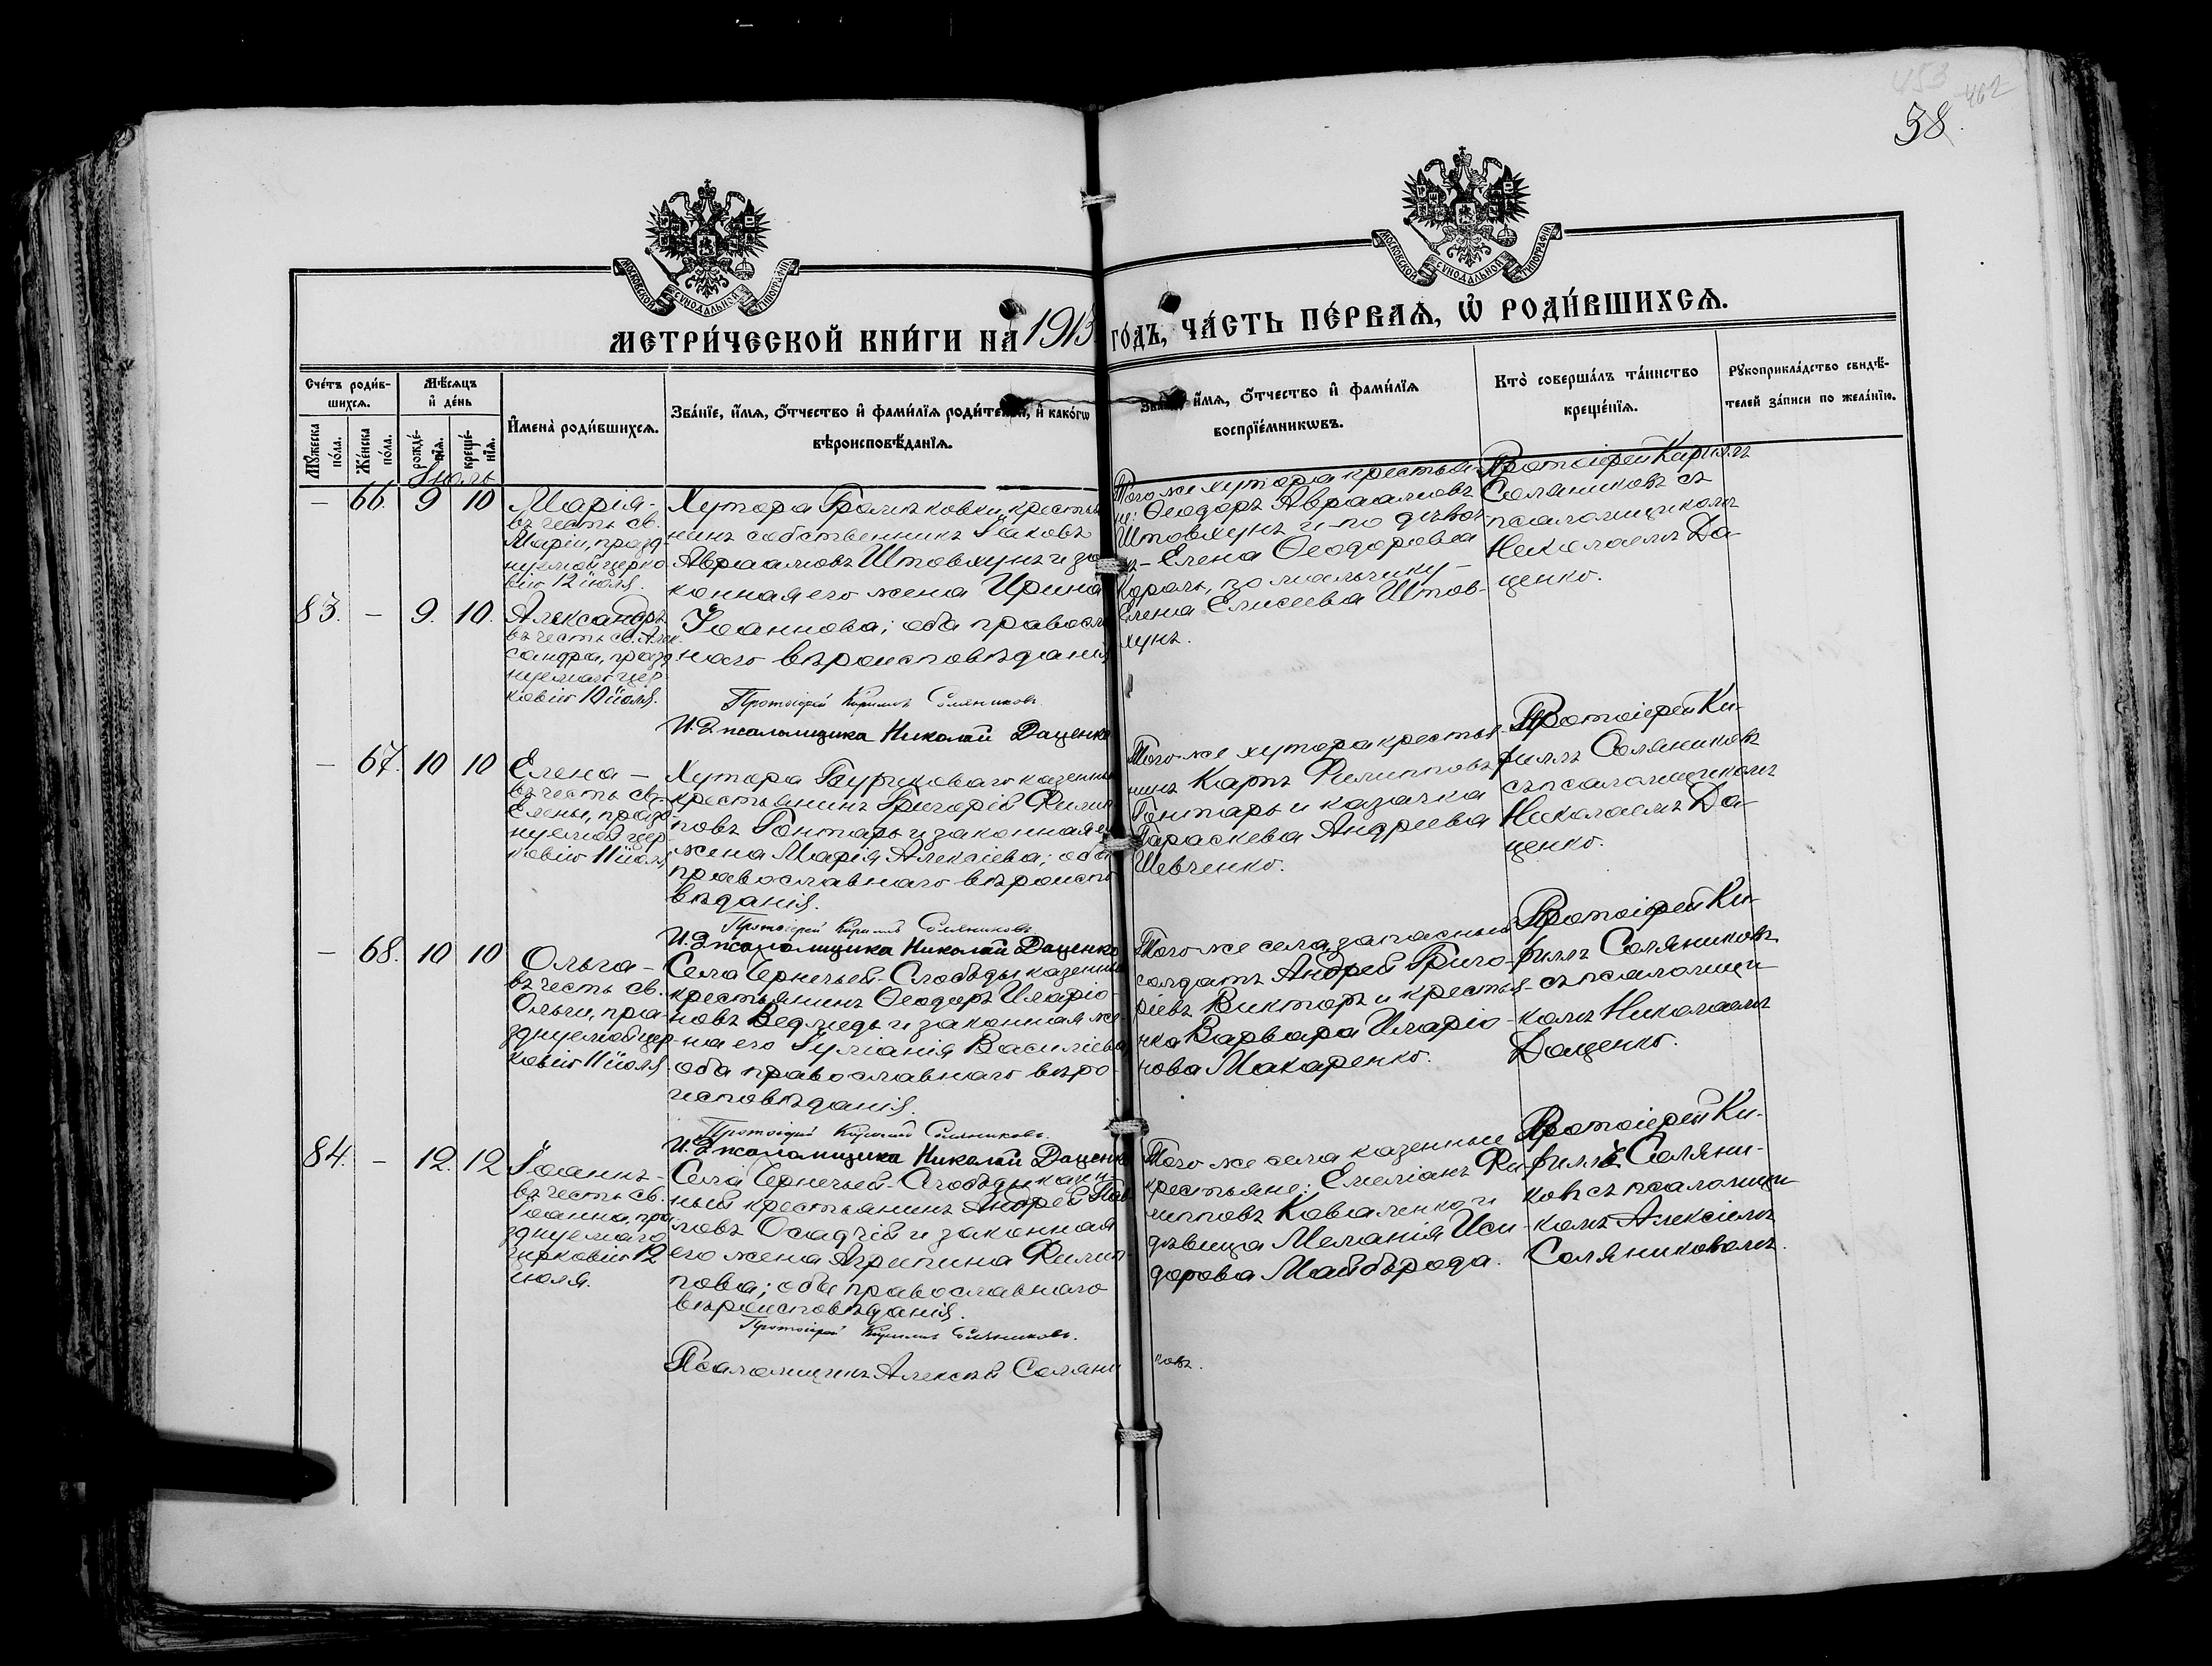 453
402
38.
МОСКОВСКОЙ СѴНОДАЛЬНОЙ ТИПОГРАФІИ
МОСКОВСКОЙ СѴНОДАЛЬНОЙ ТИПОГРАФІИ
МЕТРИ́ЧЕСКОЙ КНИ́ГИ НА 1913 ГО́ДЪ, ЧА́СТЬ ПЕ́РВАЯ, Ѡ РОДИ́ВШИХСЯ.
Сче́тъ роди́в-
шихся.
Мꙋ́жеска по́ла.
Же́нска по́ла.
Мѣ́сяцъ
и҆ де́нь
рожде́-
нїѧ.
креще́-
нїѧ.
И҆мена̀ роди́вшихсѧ.
Зва́нїе, и҆́мѧ, ѻ҆́тчество и҆ фами́лїѧ роди́телей, и҆ како́гѡ
вѣроисповѣ́данїѧ.
Зва́нїе, и҆́мѧ, ѻ҆́тчество и҆ фами́лїѧ
воспрїе́мникѡвъ.
Кто̀ соверша́лъ та́инство
креще́нїѧ.
Рꙋкоприкла́дство свидѣ́-
телей за́писи по жела́нїю.
Іюль
— 66. 9 10
Марія-
въ честь св.
Маріи, празд-
нуемой церко-
вію 12 іюля
Хутора Грамъковки, крестья
нинъ собственникъ Іаковъ
Авраамовъ Штовхунъ и за
конная его жена Ирина
Іоаннова; оба правосл
наго вѣроисповѣданія
Того же хутора крестья
не: Ѳеодоръ Авраамовъ
Штовхунъ и по дѣвоч
кѣ- Елена Ѳеодорова
Король, по мальчику-
Елена Елисеева Штов-
хунъ.
Протоіерей Кириллъ
Соляниковъ съ
псаломщикомъ
Николаемъ Да-
ценко.
83. — 9. 10.
Александръ
въ честь св. Алек-
сандра, празд
нуемаго цер-
ковію 10 іюля.
Протоіерей Кириллъ Соляниковъ.
И. д. псаломщика Николай Даценко
— 67. 10 10
Елена —
въ честь св.
Елены, празд-
нуемой цер-
ковію 11 іюля
Хутора казенный
крестьянинъ Григорій Филип
повъ Гонтарь и законная е
жена Марія Алексіева; оба
православнаго вѣроиспо
вѣданія.
Того же хутора крестья
нинъ Карпъ Филипповъ
Гонтарь и казачка
Параскева Андреева
Шевченко.
Протоіерей Ки-
риллъ Соляниковъ
съ псаломщикомъ
Николаемъ Да-
ценко.
Протоіерей Кириллъ Соляниковъ
И. д. псаломщика Николай Даценко
— 68. 10 10
Ольга —
въ честь св.
Ольги, пра-
зднуемой цер-
ковію 11 іюля
Села Чернечьей-Слободы казенный
крестьянинъ Ѳеодоръ Иларіо-
новъ Ведмедь и законная же-
на его Іуліанія Василіева
оба православнаго вѣро-
исповѣданія.
Того же села, запасный
солдатъ Андрей Григо-
ріевъ Викторъ и крестья-
нка Варвара Иларіо-
нова Макаренко.
Протоіерей Ки-
риллъ Соляниковъ
съ псаломщи-
комъ Николаемъ
Даценко.
Протоіерей Кириллъ Соляниковъ.
И. д. псаломщика Николай Даценко
84. — 12. 12
Іоаннъ-
въ честь св.
Іоанна, пра
зднуемаго
церковію 12
іюля.
Села Чернечьей-Слободы казен-
ный крестьянинъ Андрей Пав
ловъ Осадчій и законная
его жена Агрипина Филип
пова; оба православнаго
вѣроисповѣданія.
Того же села казенные
крестьяне: Емеліанъ Фи-
липповъ Коваленко и
дѣвица Меланія Иси-
дорова Майборода.
Протоіерей Ки-
риллъ Соляни-
ковъ съ псаломщи-
комъ Алексіемъ
Соляниковымъ.
Протоіерей Кириллъ Соляниковъ.
Псаломщикъ Алексѣй Соляни ковъ.